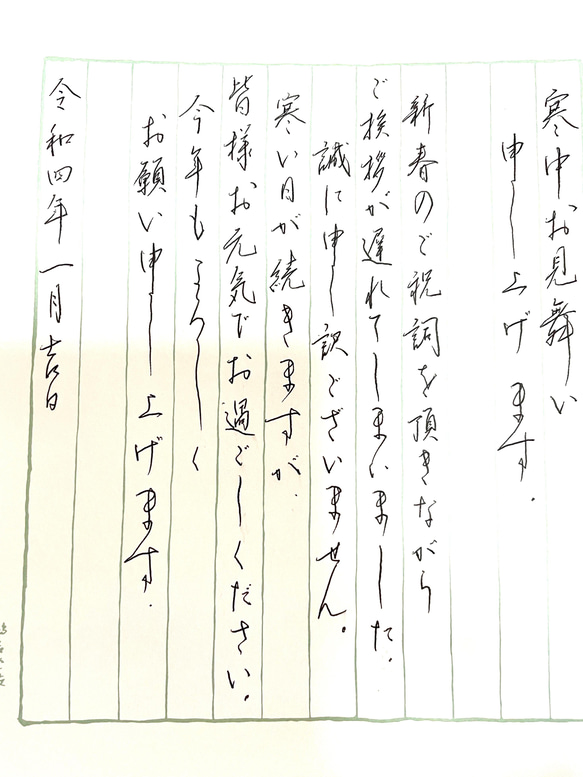 寒中お見舞い
申し上げます。
新春のご祝詞を頂きながら
ご挨拶が遅れてしまいました。
誠に申し訳ございません。
寒い日が続きますが、
皆様お元気でお過ごしください。
今年もよろしく
お願い申し上げます。
令和四年一月吉日